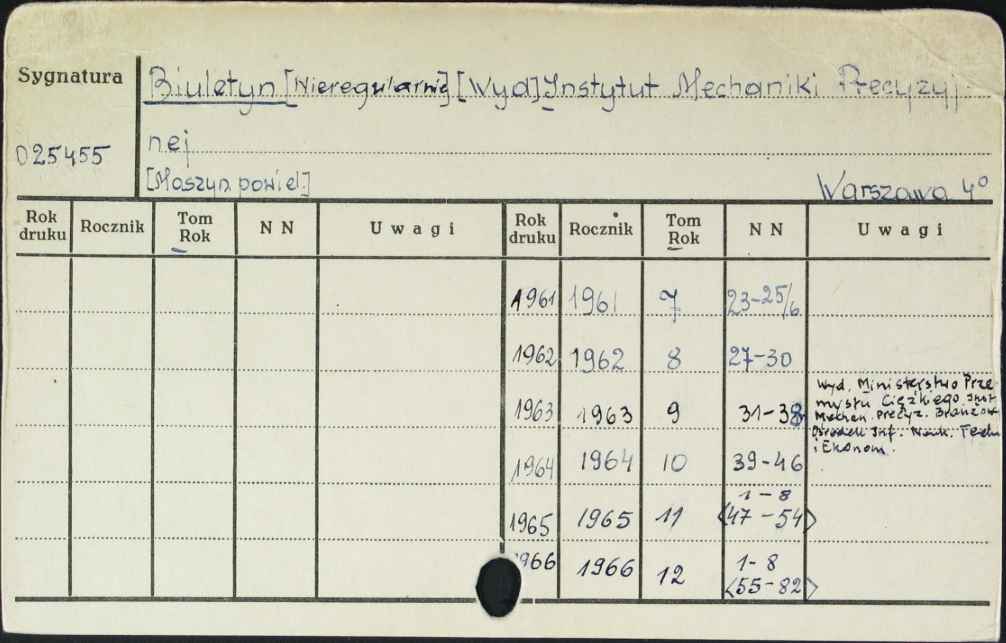 Sygnatura
Biuletyn [Nieregularnie] [Wyd] Instytut Mechaniki Precyzyj-
nej
025455
[Maszyn. powiel.]
Warszawa 4°
Rok druku Rocznik Tom Rok NN Uwagi Rok druku Rocznik Tom Rok NN Uwagi
1961 1961 7 23-25/6
1962 1962 8 27-30
1963 1963 9 31-38 Wyd. Ministerstwo Prze
mysłu Ciężkiego Inst.
Mechan. Precyz. Branżow.
Ośrodek Inf. Nauk. Techn
i Ekonom.
1964 1964 10 39-46
1965 1965 11 1-8
<47-54>
1966 1966 12 1-8
<55-82>